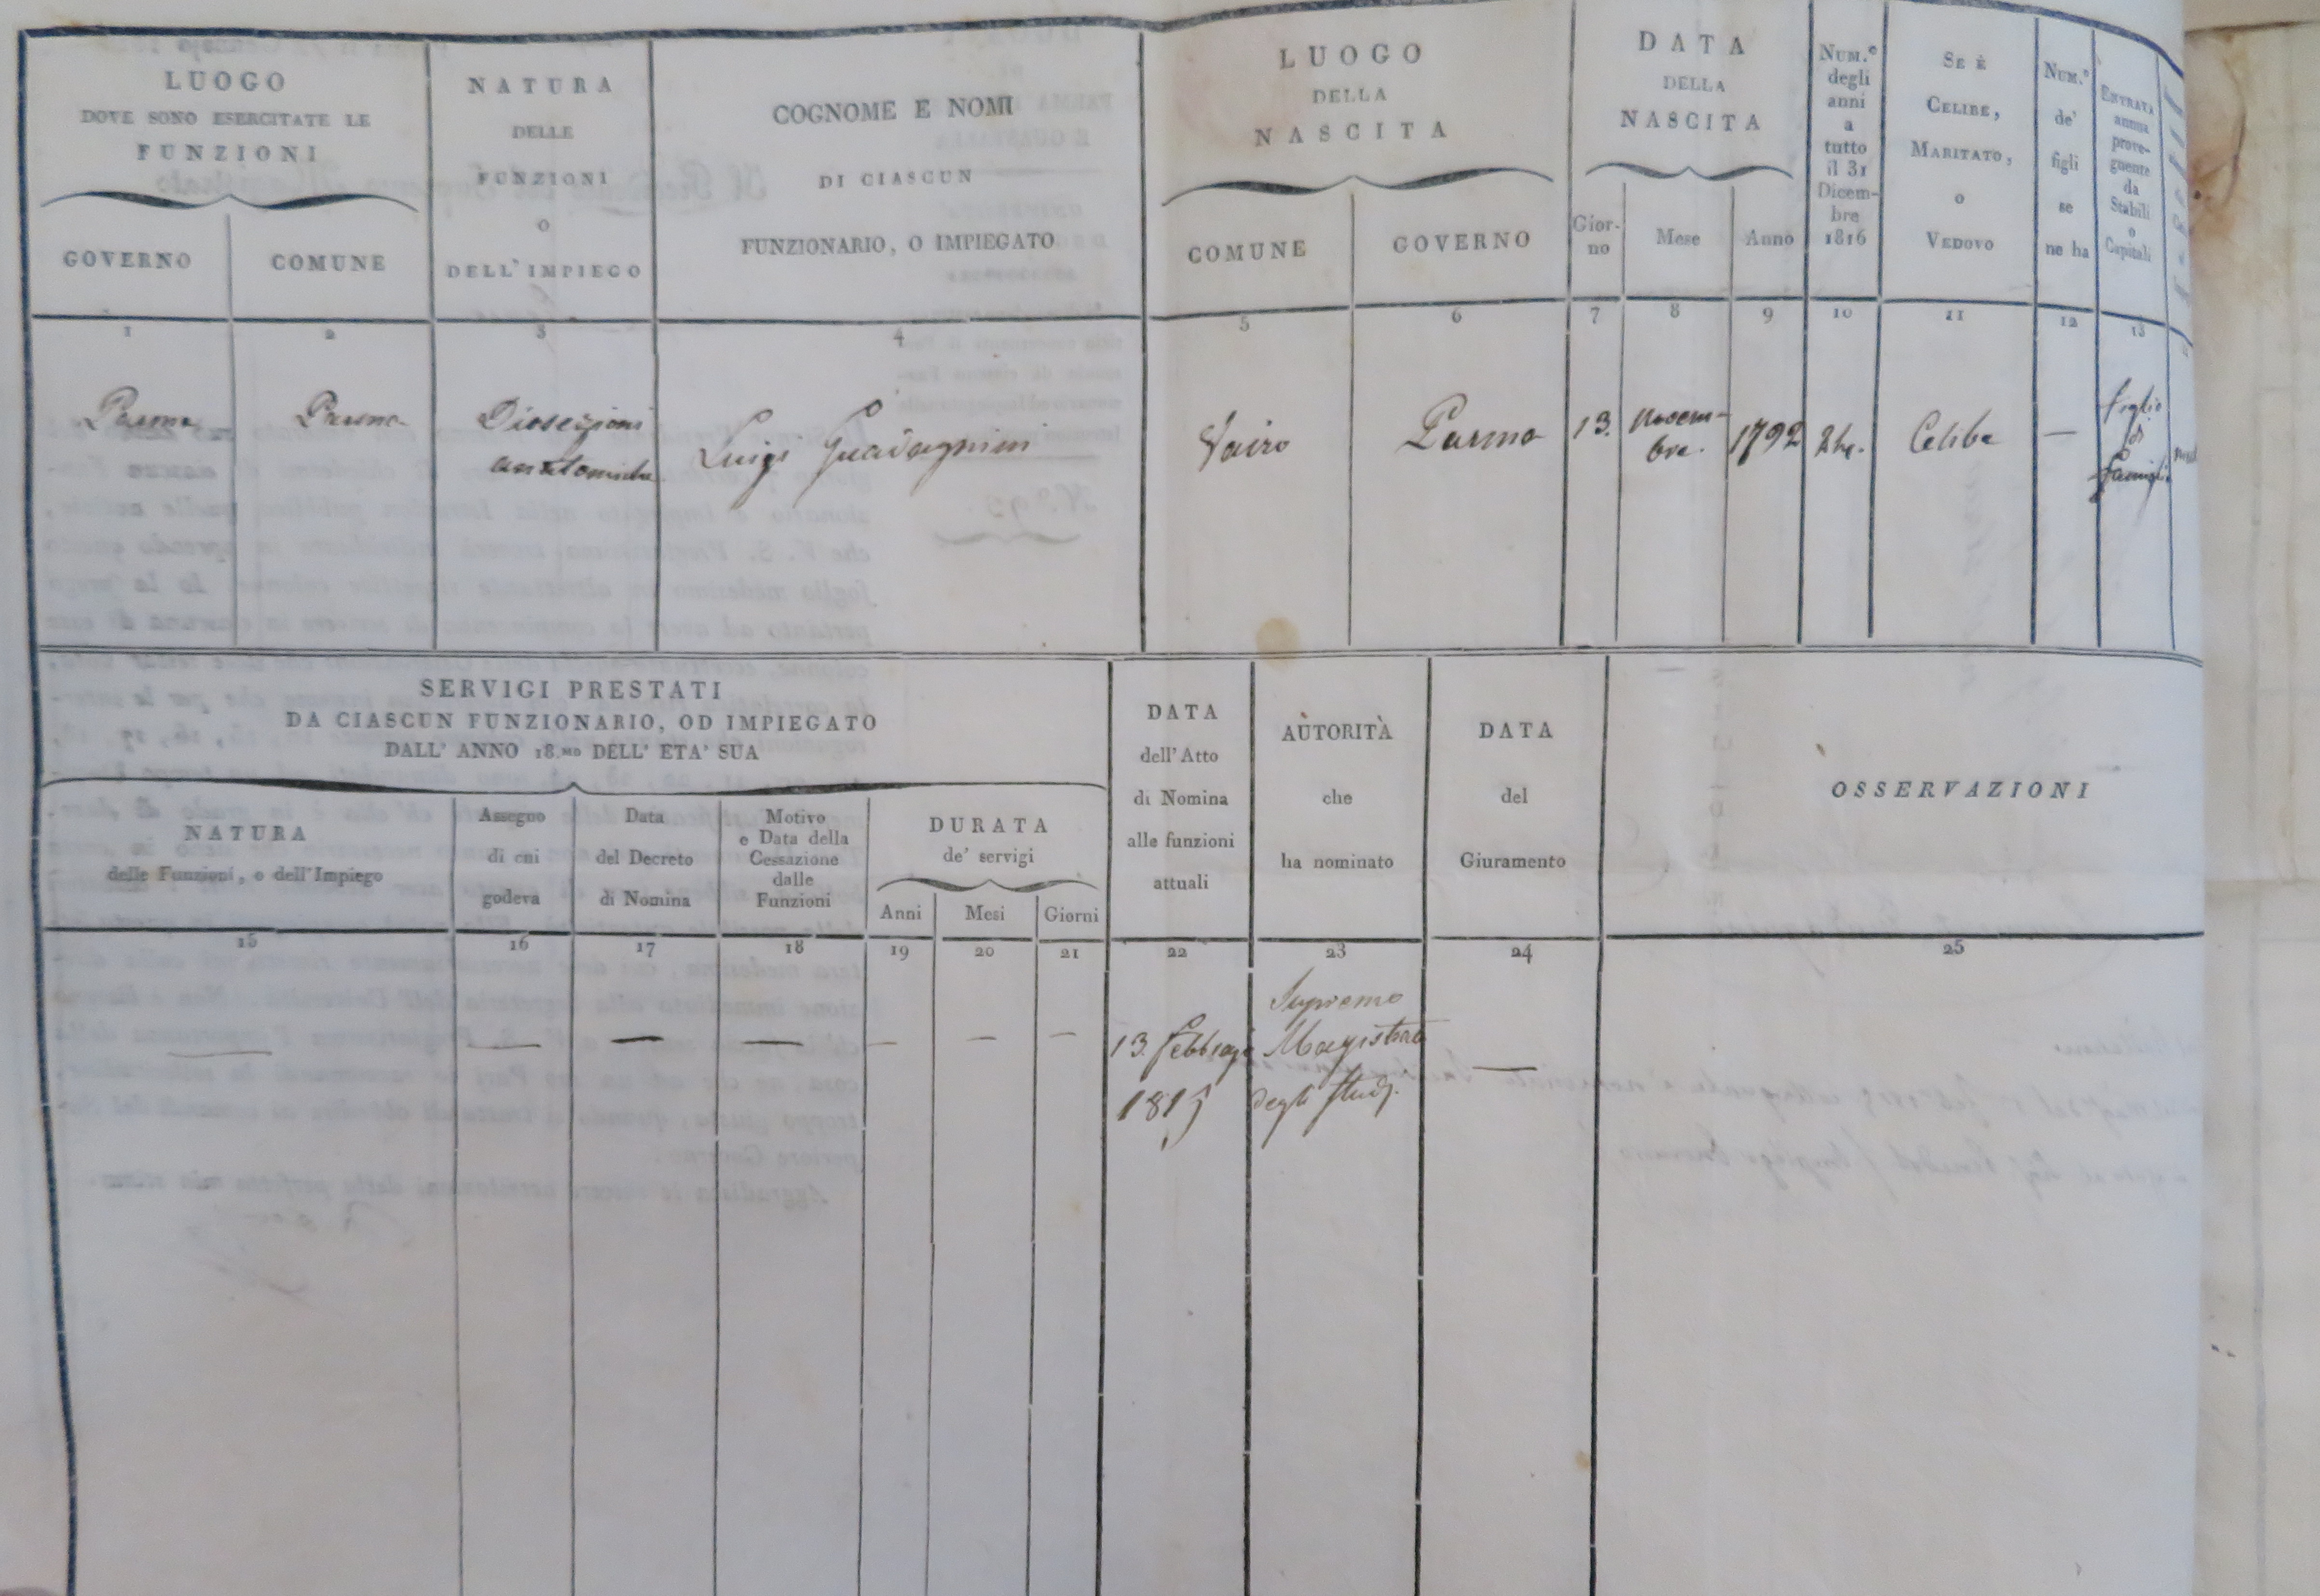 LUOGO
DOVE SONO ESERCITATE LE
FUNZIONI
GOVERNO
COMUNE
NATURA
DELLE
FUNZIONI
O
DELL'IMPIEGO
COGNOME E NOMI
DI CIASCUN
FUNZIONARIO, O IMPIEGATO
LUOGO
DELLA
NASCITA
COMUNE
GOVERNO
DATA
DELLA
NASCITA
Gior-
no
Mese
Anno
NUM.º
degli
anni
a
tutto
il 31
Dicem-
bre
1816
SE È
CELIBE,
MARITATO,
O
VEDOVO
NUM.º
de'
figli
se
ne ha
ENTRATA
annua
prove-
gnente
da
Stabili
o
Capitali
1
2
3
4
5
6
7
8
9
10
11
12
13
Parma
Parma
Diosezioni
anatomiche
Luigi Guadagnini
Vairo
Parma
13.
Novem-
bre.
1792
24.
Celibe
—
figlio
di
famigli
SERVIGI PRESTATI
DA CIASCUN FUNZIONARIO, OD IMPIEGATO
DALL' ANNO 18.MO DELL' ETA' SUA
NATURA
delle Funzioni, o dell'Impiego
Assegno
di cui
godeva
Data
del Decreto
di Nomina
Motivo
e Data della
Cessazione
dalle
Funzioni
DURATA
de' servigi
Anni
Mesi
Giorni
DATA
dell'Atto
di Nomina
alle funzioni
attuali
AUTORITÀ
che
ha nominato
DATA
del
Giuramento
OSSERVAZIONI
15
16
17
18
19
20
21
22
23
24
25
— — — — — — —
13. febbrajo
1815
Supremo
Magistrato
degli Studj.
—